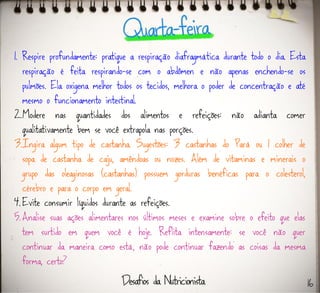 Quarta-feira
1. Respire profundamente: pratique a respiração diafragmática durante todo o dia. Esta
respiração é feita respirando-se com o abdômen e não apenas enchendo-se os
pulmões. Ela oxigena melhor todos os tecidos, melhora o poder de concentração e até
mesmo o funcionamento intestinal.
2. Modere nas quantidades dos alimentos e refeições: não adianta comer
qualitativamente bem se você extrapola nas porções.
3. Ingira algum tipo de castanha. Sugestões: 3 castanhas do Pará ou 1 colher de
sopa de castanha de caju, amêndoas ou nozes. Além de vitaminas e minerais o
grupo das oleaginosas (castanhas) possuem gorduras benéficas para o colesterol,
cérebro e para o corpo em geral.
4. Evite consumir líquidos durante as refeições.
5. Analise suas ações alimentares nos últimos meses e examine sobre o efeito que elas
tem surtido em quem você é hoje. Reflita intensamente: se você não quer
continuar da maneira como está, não pode continuar fazendo as coisas da mesma
forma, certo?
Desafios da Nutricionista
16